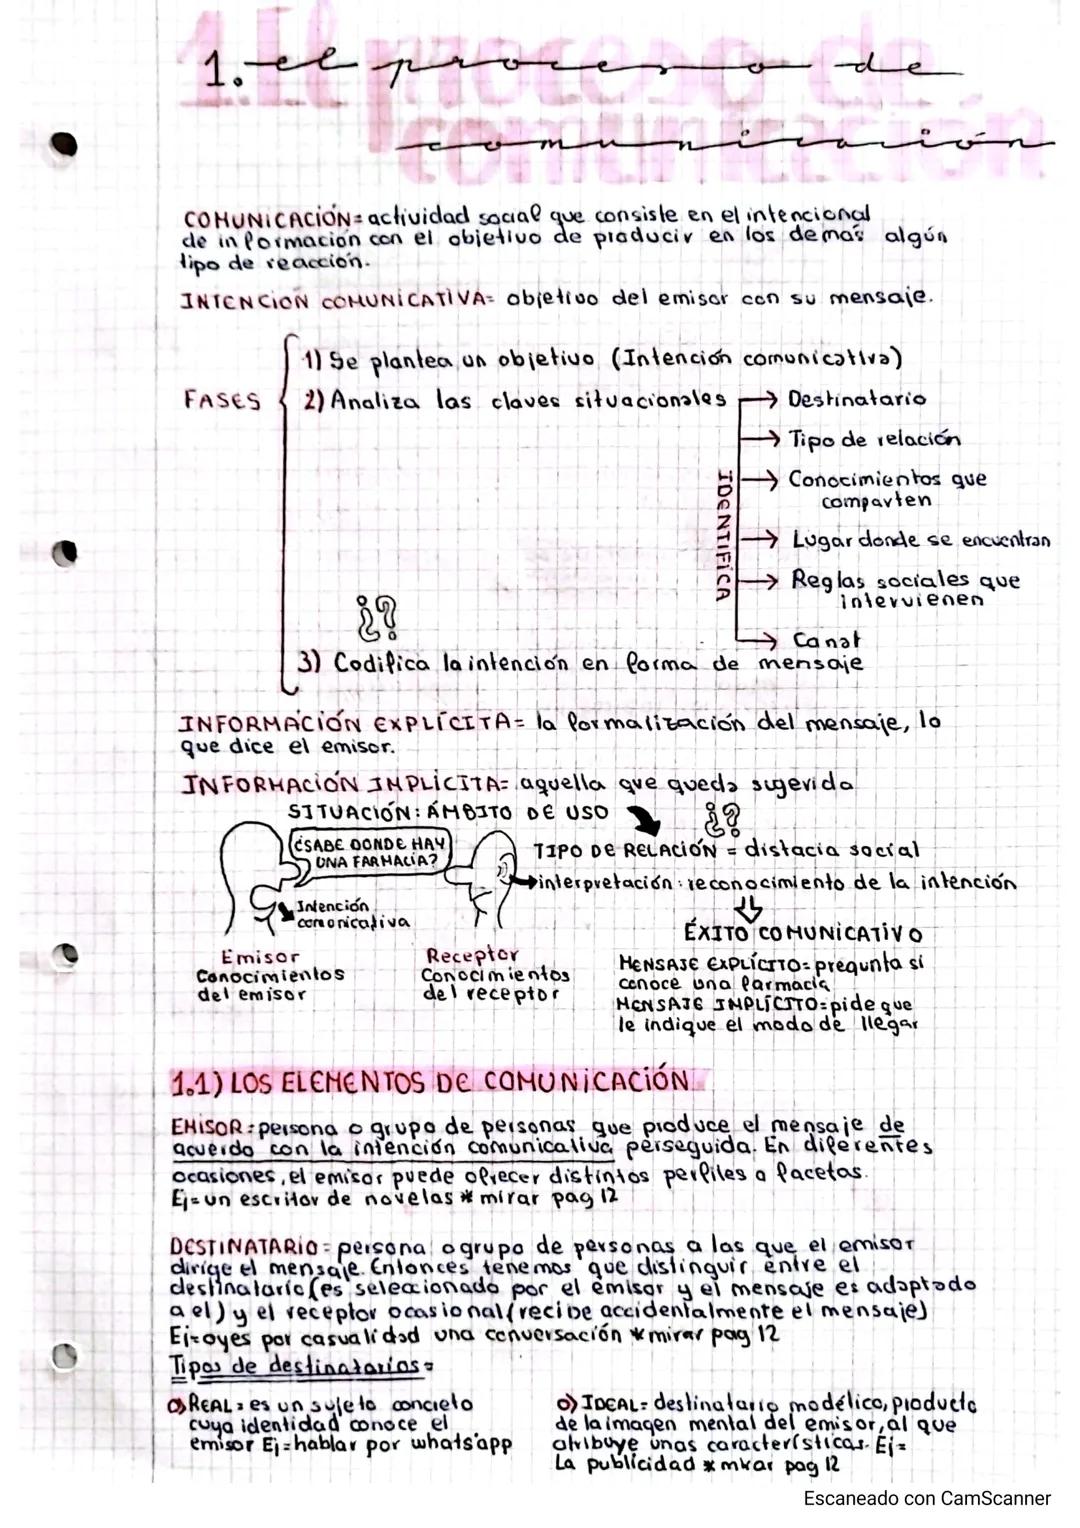 1. El proceso de
comunicación
COMUNICACIÓN= actividad social que consiste en el intencional
de información con el objetivo de producir en los demás algún
tipo de reacción.
INTENCIÓN COMUNICATIVA= objetivo del emisor con su mensaje.
1) Se plantea un objetivo (Intención comunicativa)
FASES
2) Analiza las claves situacionales → Destinatario
→ Tipo de relación
IDENTIFICA
→ Conocimientos que
comparten
→ Lugar donde se encuentran
→ Reglas sociales que
intervienen
¿?
→ Canal
3) Codifica la intención en forma de mensaje
INFORMACIÓN EXPLÍCITA= la formalización del mensaje, lo
que dice el emisor.
INFORMACIÓN IMPLÍCITA= aquella que queda sugerida
SITUACIÓN: ÁMBITO DE USO
¿?
¿SABE DONDE HAY
UNA FARMACIA?
TIPO DE RELACIÓN = distacia social
→interpretación: reconocimiento de la intención
Intención
comonicativa
ÉXITO COMUNICATIVO
Emisor
Conocimientos
del emisor
Receptor
Conocimientos
del receptor
MENSAJE EXPLÍCITO= pregunta si
conoce una farmacia
MENSAJE IMPLÍCITO= pide que
le indique el modo de llegar
1.1) LOS ELEMENTOS DE COMUNICACIÓN
EMISOR: persona o grupo de personas que produce el mensaje de
acuerdo con la intención comunicativa perseguida. En diferentes
ocasiones, el emisor puede ofrecer distintos perfiles o facetas.
Ej= un escritor de novelas * mirar pag 12
DESTINATARIO= persona o grupo de personas a las que el emisor
dirige el mensaje. Entonces tenemos que distinguir entre el
destinatario (es seleccionado por el emisor y el mensaje es adaptado
a el) y el receptor ocasional (recibe accidentalmente el mensaje)
Ej= oyes por casualidad una conversación * mirar pag 12
Tipos de destinatarios=
o) REAL= es un sujeto concreto
cuya identidad conoce el
emisor Ej= hablar por whats'app
o) IDEAL= destinatario modélico, producto
de la imagen mental del emisor, al que
atribuye unas características. Ej=
La publicidad * mirar pag 12
Escaneado con CamScanner